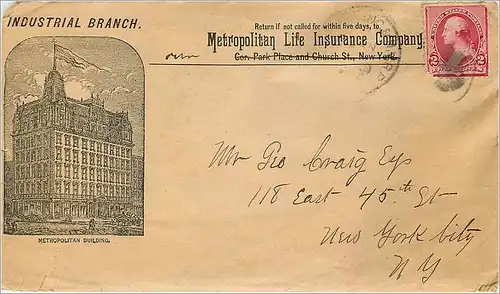 INDUSTRIAL BRANCH.
Return if not called for within five days, to
Metropolitan Life Insurance Company,
Cor. Park Place and Church St., New York.
METROPOLITAN BUILDING.
2 2
Mr Geo Craig Esq
118 East 45th St
New York City
N Y